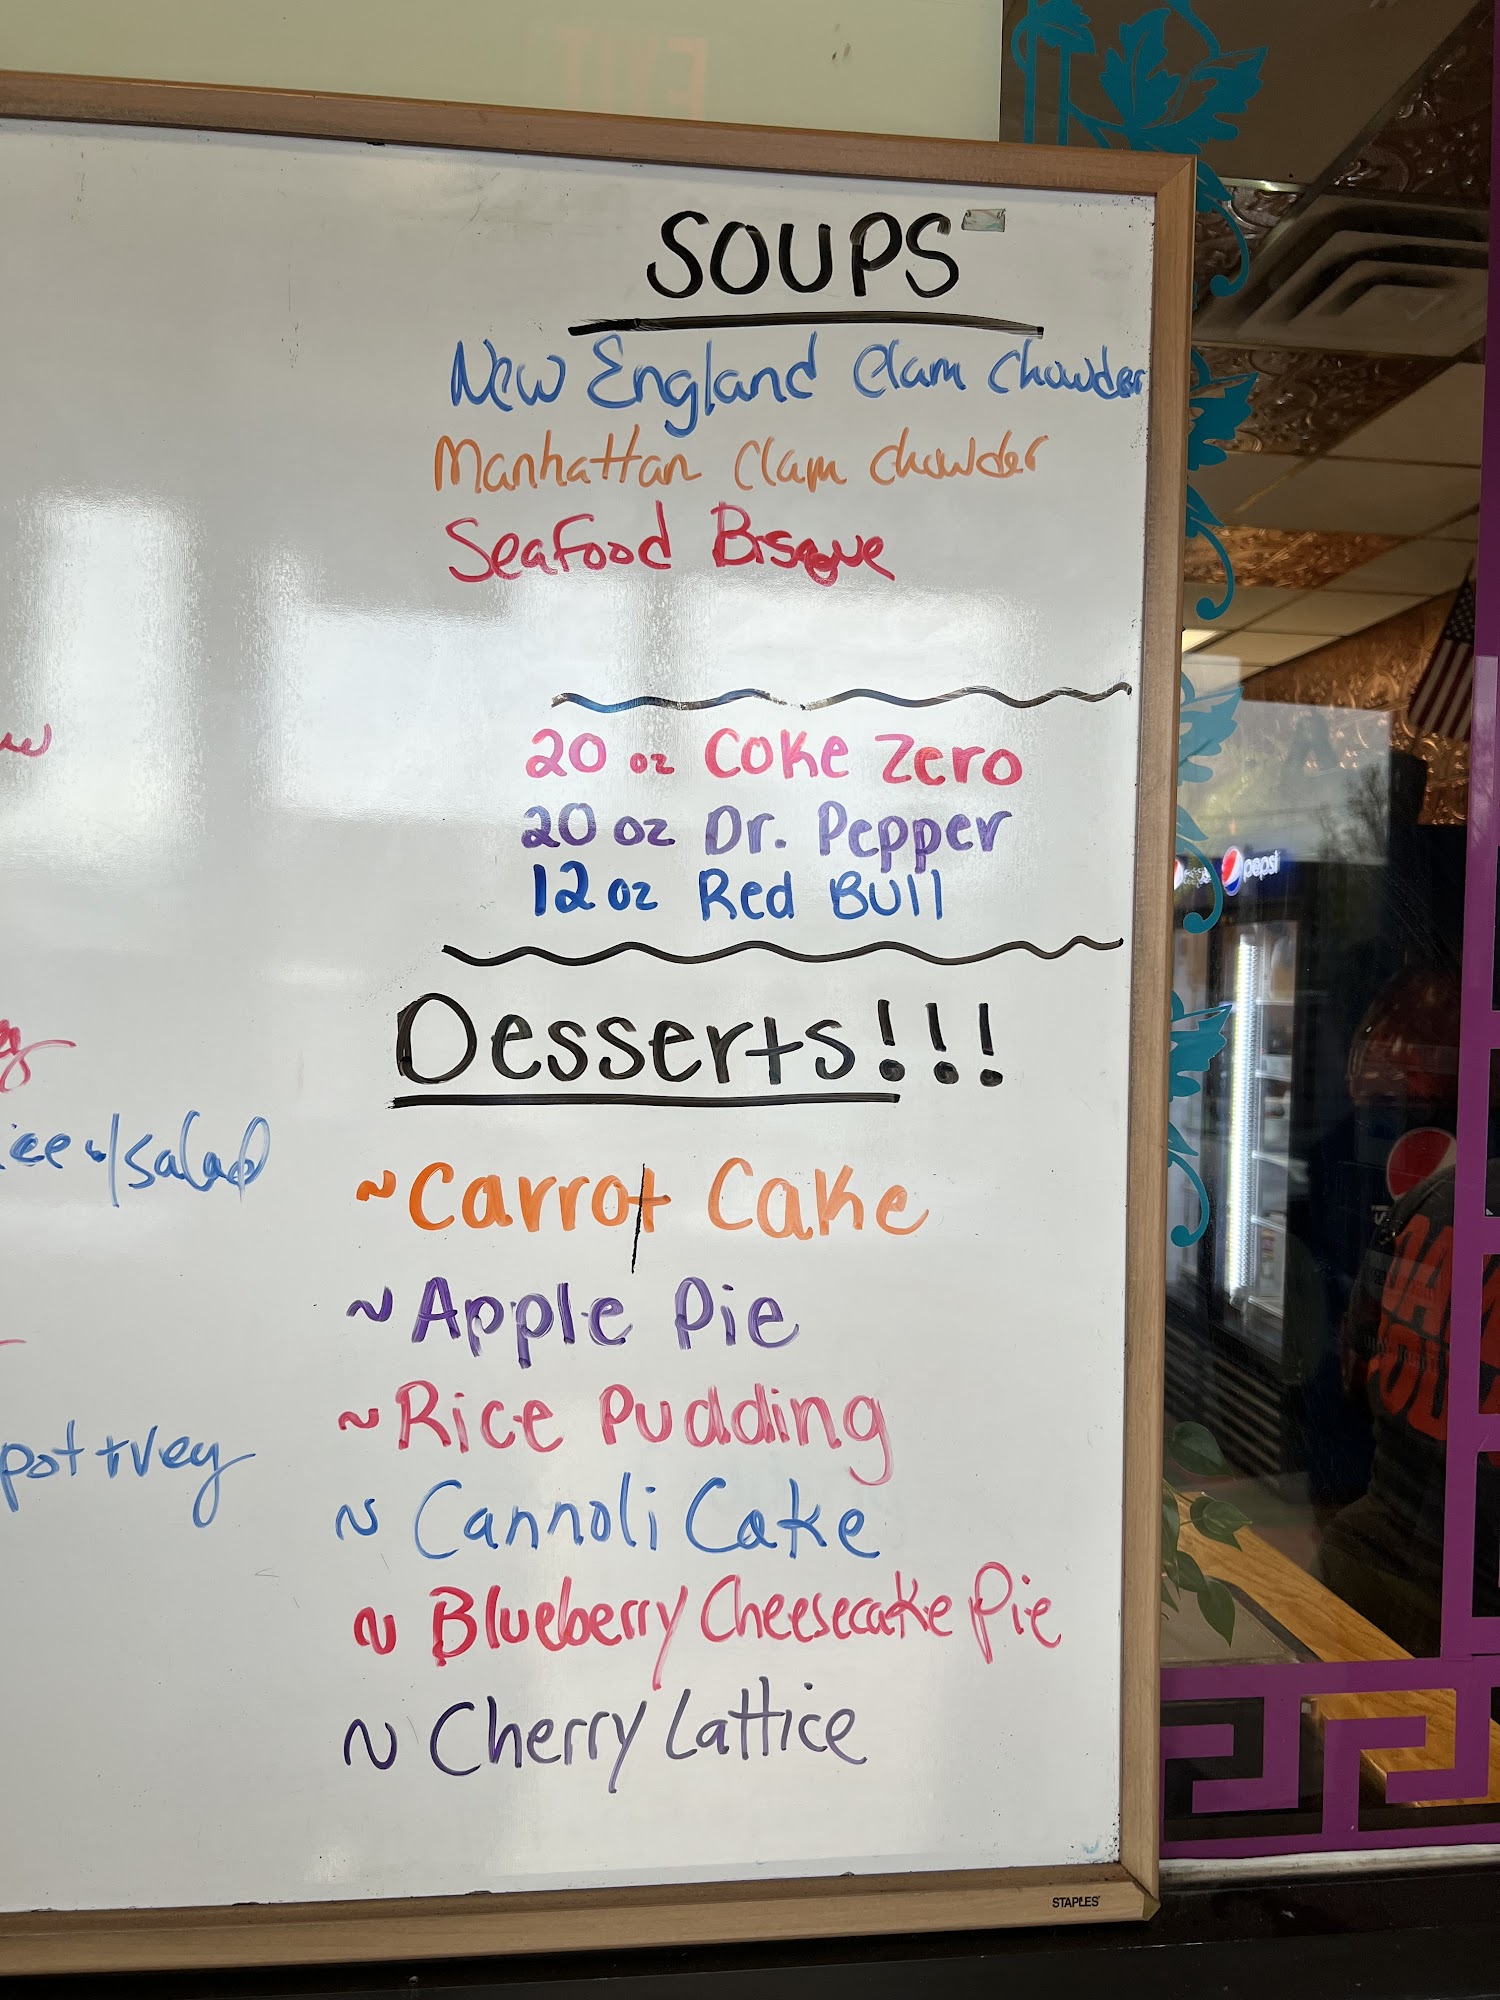 SOUPS
New England Clam Chowder
Manhattan Clam Chowder
Seafood Bisque
20 oz Coke Zero
20 oz Dr. Pepper
12 oz Red Bull
Desserts!!!
~ Carrot Cake
~ Apple Pie
~ Rice Pudding
~ Cannoli Cake
~ Blueberry Cheesecake Pie
~ Cherry Lattice
w/salad
pot + veg
pepsi
STAPLES
EXIT